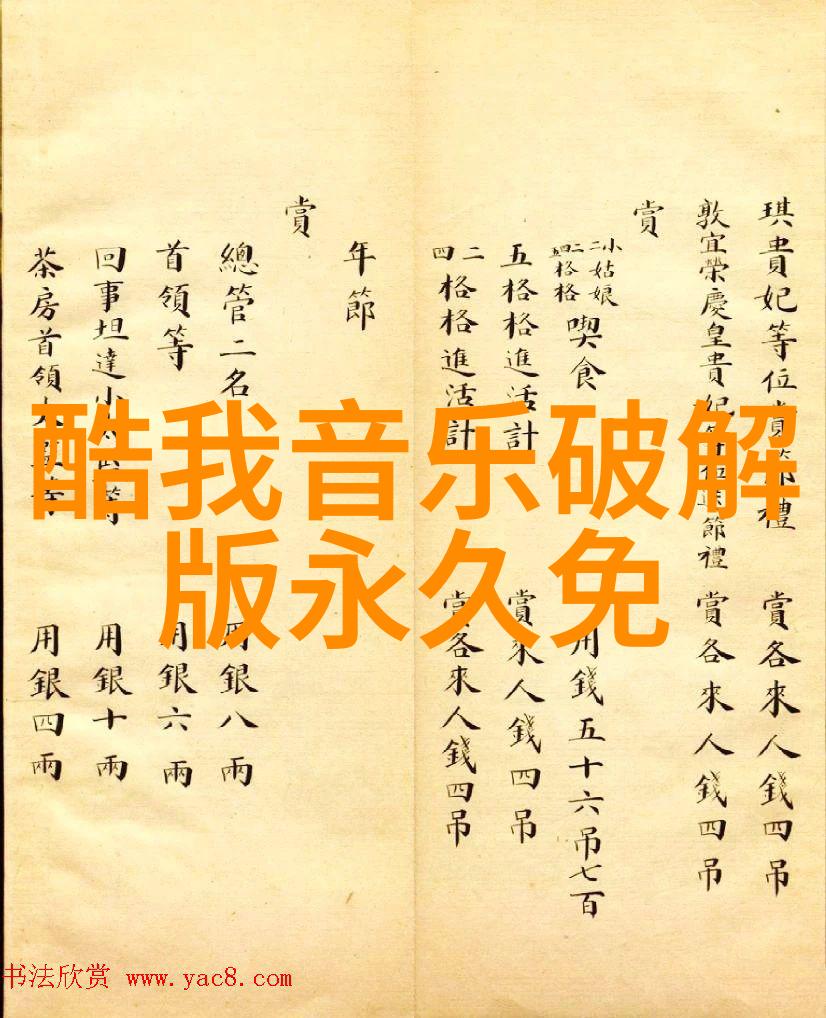 琪貴妃等位賞節禮 賞各來人錢四吊
敦宜榮慶皇貴妃等位送節禮 賞各來人錢四吊
賞
二小姑娘 二四格格 喫食 用錢五十六吊七百
五格格進活計 賞來人錢四吊
二四格格進活計 賞各來人錢四吊
年節
賞
總管二名 用銀八兩
首領等 用銀六兩
回事坦達小太監等 用銀十兩
茶房首領太監等 用銀四兩
酷我音乐破解
版永久免
书法欣赏 www.yac8.com